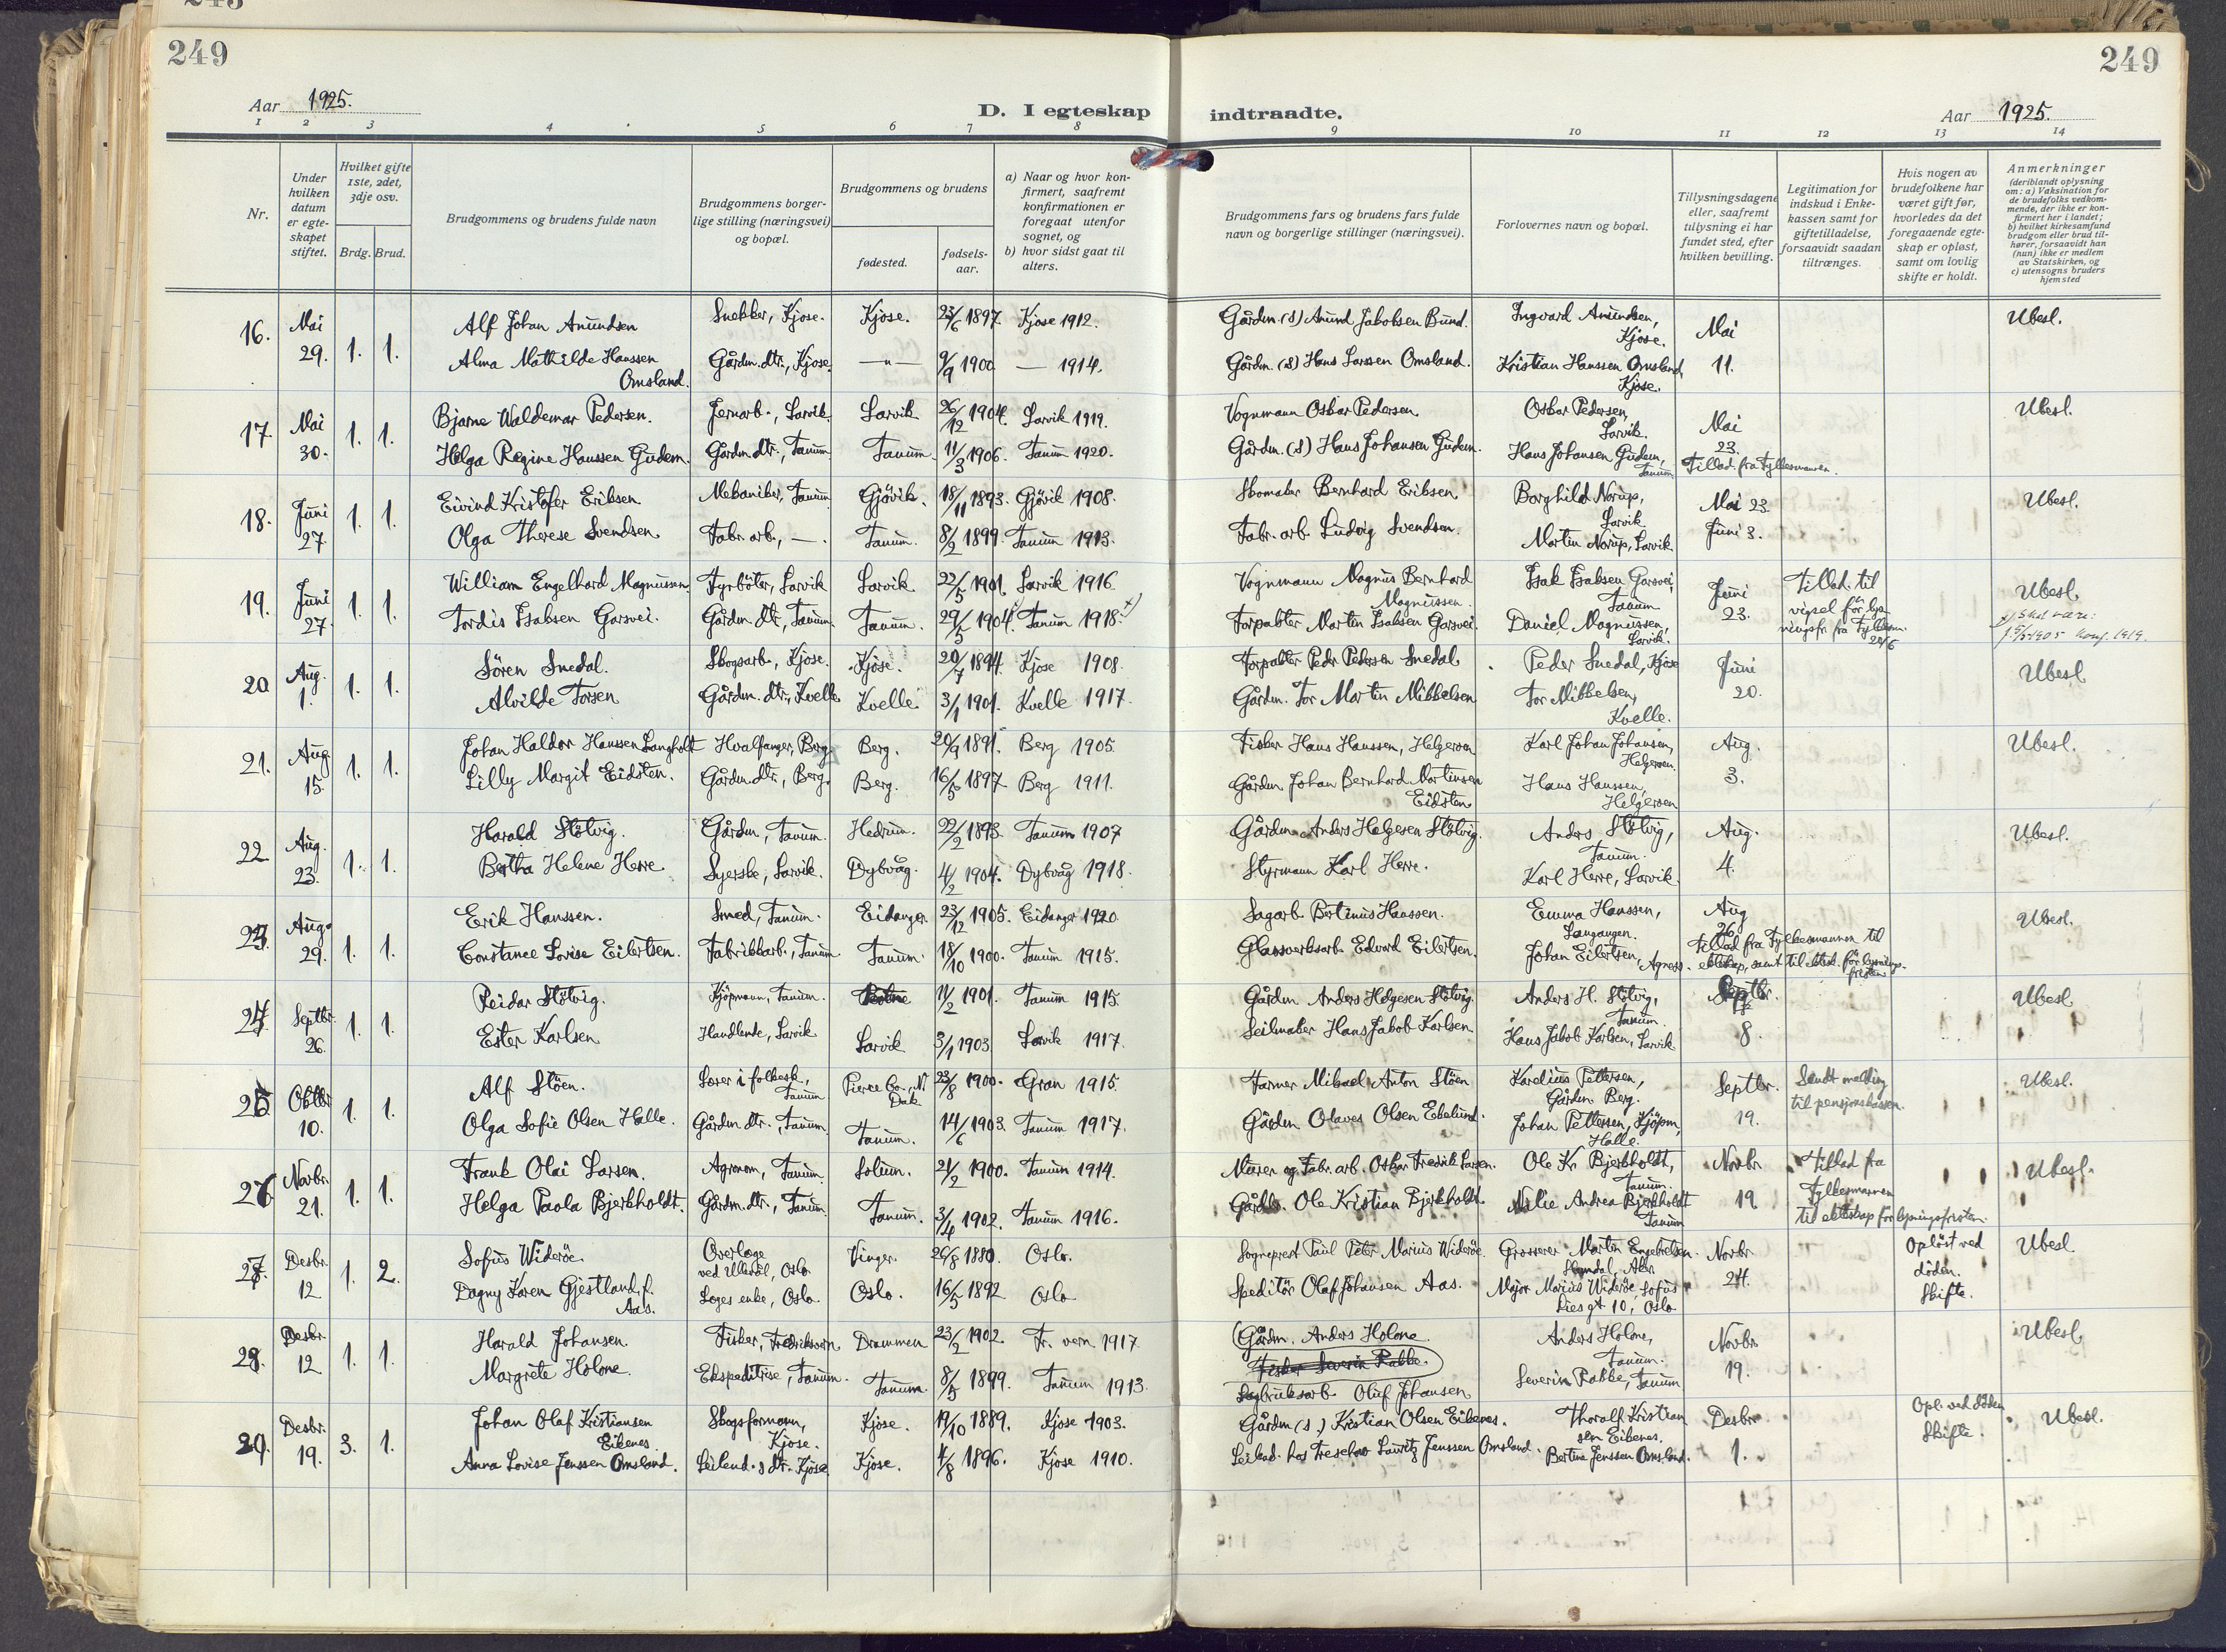 249
249
Aar 1925.
D. I egteskap indtraadte.
Aar 1925.
1 2 3 4 5 6 7 8 9 10 11 12 13 14
Nr.
Under hvilken datum er egteskapet stiftet.
Hvilket gifte 1ste, 2det, 3dje osv.
Brdg. Brud.
Brudgommens og brudens fulde navn
Brudgommens borgerlige stilling (næringsvei) og bopæl.
Brudgommens og brudens
fødested.
fødselsaar.
a) Naar og hvor konfirmert, saafremt konfirmationen er foregaat utenfor sognet, og
b) hvor sidst gaat til alters.
Brudgommens fars og brudens fars fulde navn og borgerlige stillinger (næringsvei).
Forlovernes navn og bopæl.
Tillysningsdagene eller, saafremt tillysning ei har fundet sted, efter hvilken bevilling.
Legitimation for indskud i Enkekassen samt for giftetilladelse, forsaavidt saadan tiltrænges.
Hvis nogen av brudefolkene har været gift før, hvorledes da det foregaaende egteskap er opløst, samt om lovlig skifte er holdt.
Anmerkninger (deriblandt oplysning om: a) Vaksination for de brudefolks vedkommende, der ikke er konfirmert her i landet; b) hvilket kirkesamfund brudgom eller brud tilhører, forsaavidt han (hun) ikke er medlem av Statskirken, og c) utensogns bruders hjemsted
16. Mai 29. 1. 1. Alf Johan Amundsen Snekker, Kjose. Kjose. 23/6 1897. Kjose 1912. Gårdm. (s) Amund Jakobsen Bund. Ingvard Amundsen, Kjose. Mai 11. Ubesl.
Alma Mathilde Hanssen Omsland. Gårdm. dtr., Kjose. —"— 9/9 1900. — 1914. Gårdm. (s) Hans Larssen Omsland. Kristian Hanssen Omsland, Kjose.
17. Mai 30. 1. 1. Bjarne Waldemar Pedersen. Jernarb., Larvik. Larvik 26/12 1904. Larvik 1919. Vognmann Oskar Pedersen. Oskar Pedersen, Larvik. Mai 23. Ubesl.
Helga Regine Hanssen Gudem. Gårdm. dtr., Tanum. Tanum. 11/3 1906. Tanum 1920. Gårdm. (s) Hans Johansen Gudem. Hans Johansen Gudem, Tanum. Tillad. fra Fylkesmannen.
18. Juni 27. 1. 1. Eivind Kristofer Eriksen Mekaniker, Tanum Gjövik. 18/11 1893. Gjövik 1908. Skomaker Bernhard Eriksen. Borghild Norup, Larvik Mai 23. Ubesl.
Olga Therese Svendsen. Fabr. arb., —. Tanum. 8/2 1899. Tanum 1913. Fabr. arb. Ludvig Svendsen. Martin Norup, Larvik. Juni 3.
19. Juni 27. 1. 1. William Engelhard Magnussen. Fyrböter, Larvik Larvik 22/5 1901. Larvik 1916. Vognmann Magnus Bernhard Magnussen. Isak Isaksen Gorsvei, Tanum Juni 23. Tillad. til vigsel för lysningsfr. fra Fylkesm. 24/6 Ubesl.
Tordis Isaksen Gorsvei. Gårdm. dtr., Tanum. Tanum. 29/5 1904. Tanum 1918. x) Forpakter Martin Isaksen Gorsvei. Daniel Magnussen, Larvik. x) Skal være: 1905 konf. 1919.
20. Aug. 1. 1. 1. Sören Snedal. Skogsarb., Kjose. Kjose. 20/7 1894. Kjose 1908. Forpakter Peder Pedersen Snedal. Peder Snedal, Kjose Juni 20. Ubesl
Alvilde Torsen Gårdm. dtr., Kvelle Kvelle 3/1 1901. Kvelle 1917. Gårdm. Tor Martin Mikkelsen Tor Mikkelsen, Kvelle.
21. Aug. 15. 1. 1. Johan Haldor Hanssen Langholt Hvalfanger, Berg. Berg. 20/9 1891. Berg 1905. Fisker Hans Hanssen, Helgeroen Karl Johan Johansen, Helgeroen. Aug. 3. Ubesl.
Lilly Margit Eidsten. Gårdm. dtr., Berg. Berg. 16/5 1897 Berg 1911. Gårdm. Johan Bernhard Martinsen Eidsten Hans Hanssen, Helgeroen
22. Aug. 23. 1. 1. Harald Stölvig. Gårdm., Tanum. Hedrum. 22/2 1893. Tanum 1907 Gårdm. Anders Helgesen Stölvig. Anders Stölvig, Tanum. Aug. 4. Ubesl.
Bertha Helene Herre Syerske, Larvik. Dybvåg. 4/2 1904. Dybvåg 1918. Styrmann Karl Herre. Karl Herre, Larvik.
23. Aug. 29. 1. 1. Erik Hanssen. Smed, Tanum. Eidanger. 23/12 1905. Eidanger 1920. Sagarb. Bertinus Hanssen. Emma Hanssen, Langangen. Aug 26 Ubesl.
Constance Lovise Eilertsen. Fabrikkarb., Tanum. Tanum. 18/10 1900. Tanum 1915. Glassverksarb. Edvard Eilertsen. Johan Eilertsen, Agnes. Tillad fra Fylkesmannen til ektskap, samt til ektsk. för lysningsfristen.
24. Septbr. 26. 1. 1. Reidar Stölvig. Kjöpmann, Tanum. 11/2 1901. Tanum 1915. Gårdm Anders Helgesen Stölvig. Anders H. Stölvig, Tanum. Septbr. 8. Ubesl
Ester Karlsen Handlende, Larvik Larvik 3/1 1903 Larvik 1917. Seilmaker Hans Jakob Karlsen Hans Jakob Karlsen, Larvik
25 Oktbr 10. 1. 1. Alf Stöen. Lærer i folkesk., Tanum Pierce Co., N. Dak. 23/8 1900. Gran 1915. Farmer Mikael Anton Stöen Karelius Pettersen, Gårdm. Berg. Septbr. 19. Sendt melding til pensjonskassen. Ubesl.
Olga Sofie Olsen Halle. Gårdm. dtr., Tanum. Tanum. 14/6 1903. Tanum 1917. Gårdm. Olaves Olsen Ekelund. Johan Pettersen, Kjöpm, Halle.
26. Novbr. 21. 1. 1. Frank Olai Larsen. Agronom, Tanum. Solum. 21/2 1900. Tanum 1914. Murer og Fabr. arb. Oskar Fredrik Larsen. Ole Kr. Bjerkholdt, Tanum. Novbr. 19. Tillad fra Fylkesmannen til ektskap för lysningsfristen. Ubesl.
Helga Paola Bjerkholdt. Gårdm. dtr., Tanum. Tanum. 3/4 1902. Tanum 1916. Gårdb. Ole Kristian Bjerkholdt. Andrea Bjerkholdt Tanum
27. Desbr. 12 1. 2. Sofus Wideröe Overlæge ved Ullevål, Oslo. Vinger. 26/8 1880. Oslo. Sogneprest Paul Peter Marius Wideröe. Grosserer Martin Engebretsen Aker. Novbr. 24. Oplöst ved döden. Skifte. Ubesl.
Dagny Karen Gjestland, f. Aas. Læges enke, Oslo. Oslo. 16/5 1892 Oslo Speditör Olaf Johansen Aas. Major Marius Wideröe, Sofus Liesgt 10, Oslo
28. Desbr. 12 1. 1. Harald Johansen. Fisker, Fredriksvern Drammen 23/2 1902. Fr. vern 1917 (Gårdm. Anders Holone. Anders Holone, Tanum. Novbr 19. Ubesl.
Fisker Severin Rakke.
Margrete Holone. Ekspeditrise, Tanum. Tanum. 8/5 1899. Tanum 1913. Sagbruksarb. Oluf Johansen Severin Rakke, Tanum
29. Desbr. 19. 3. 1. Johan Olaf Kristiansen Eikenes. Skogsformann, Kjose. Kjose. 19/10 1889. Kjose 1903. Gårdm (s.) Kristian Olsen Eikenes. Thoralf Kristiansen Eikenes. Desbr. 1. Opl. ved döden Skifte. Ubesl.
Anna Lovise Jenssen Omsland. Leilend.s dtr. Kjose Kjose. 4/8 1896. Kjose 1910. Leilend. hos Treschow Lauritz Jenssen Omsland. Bertine Jenssen Omsland.